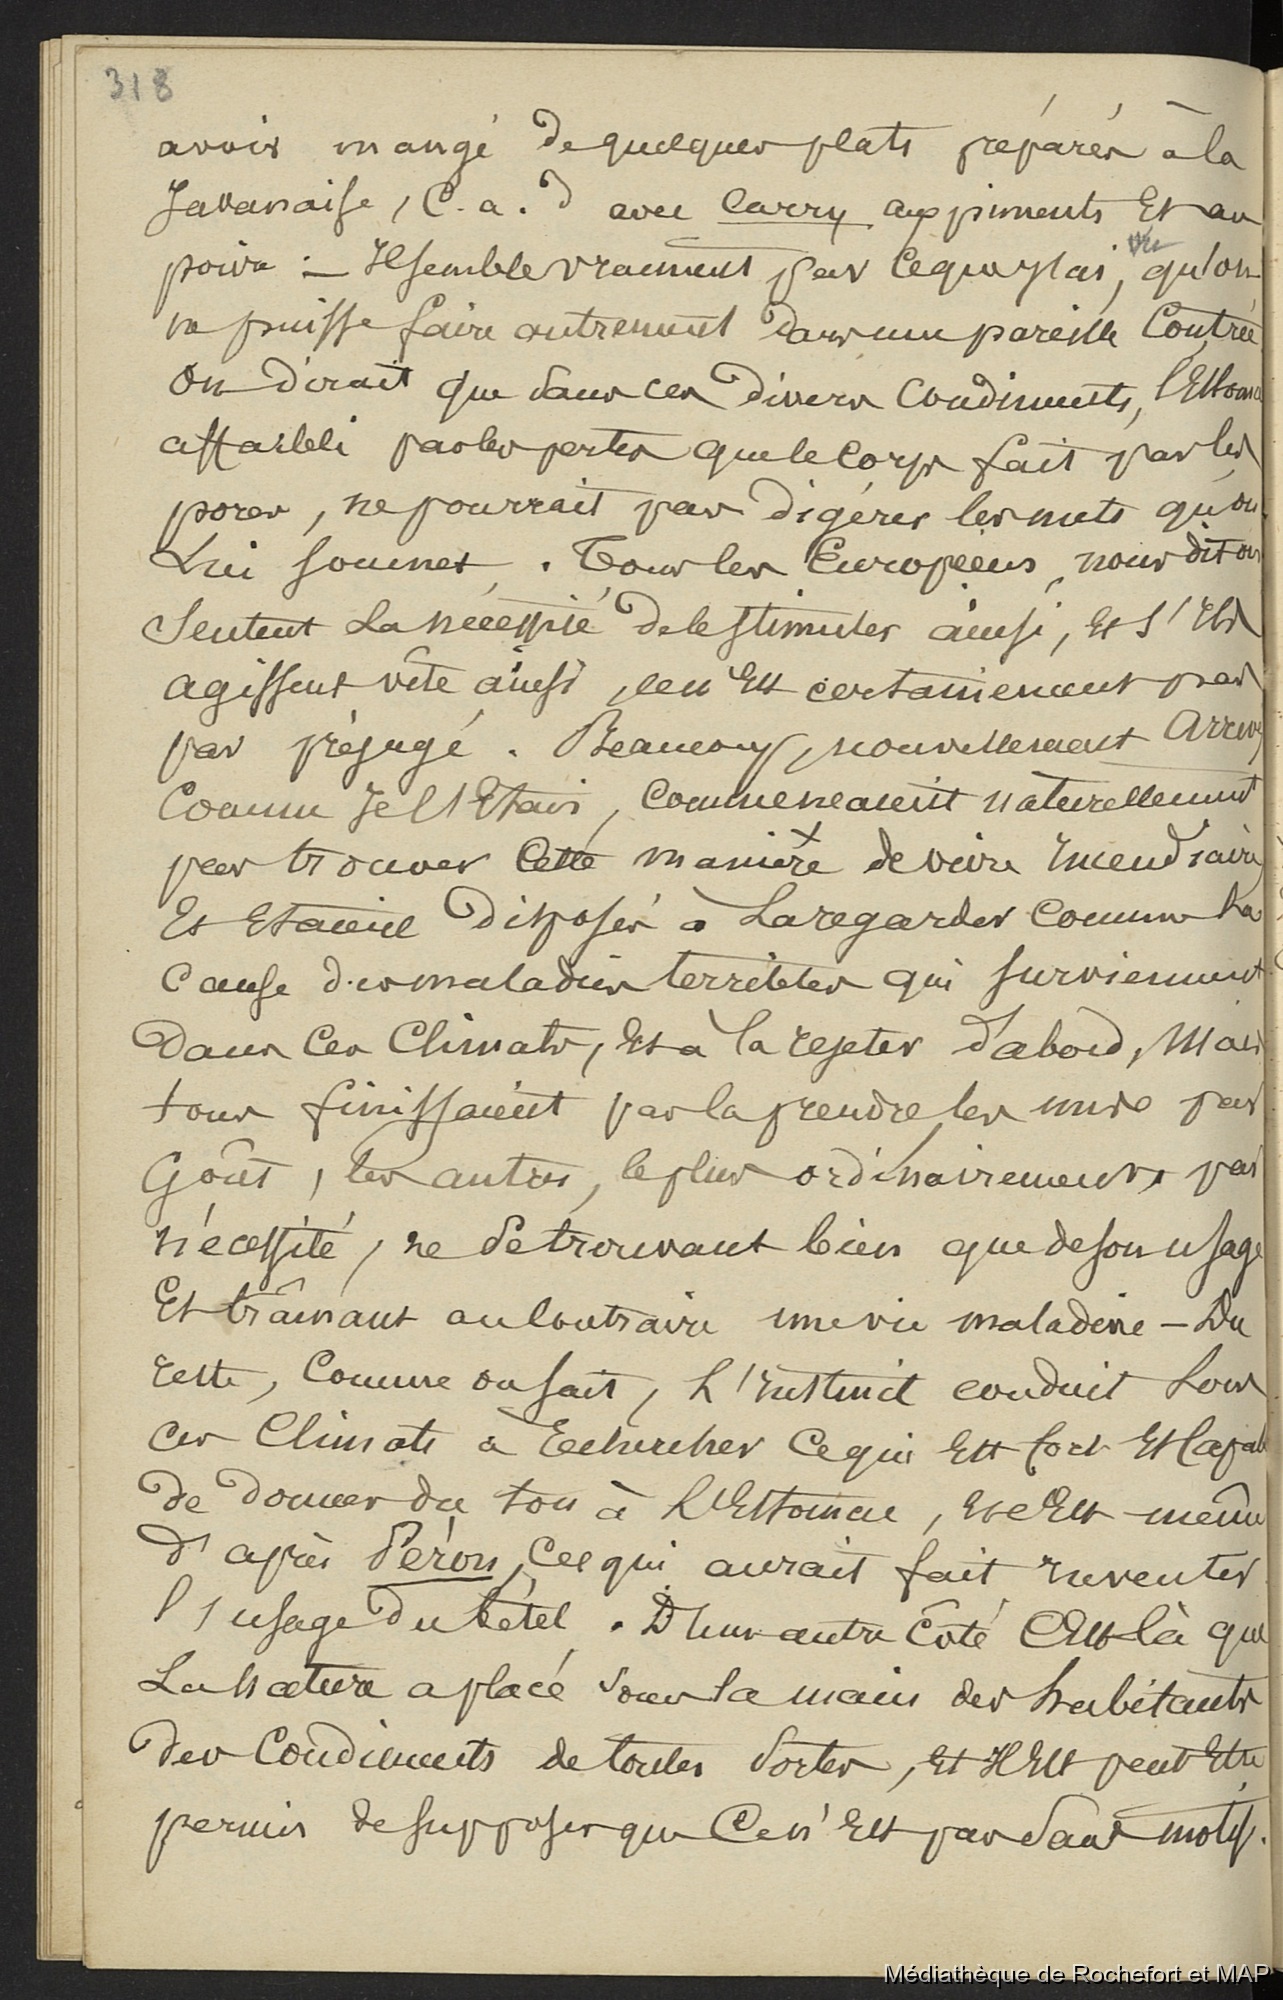 318
avoir mangé de quelques plats préparés à la
Javanaise, C. a. d avec Carry aux piments Et au
poivre : — Il semble vraiment par ce que j'ai vu, qu'on
ne puisse faire autrement dans une pareille Contrée
On dirait que sans ces divers Condiments, l'Estomac
affaibli par les pertes que le corps fait par les
pores, ne pourrait pas digérer les mets qu'on
Lui soumet. Tous les Européens, nous dit on
Sentent La nécessité de le stimuler ainsi, Et s'Ils
agissent vite ainsi, ce n'Est certainement pas
par préjugé. Beaucoup, nouvellement Arrivés
Comme Je l'Etais, Commençaient naturellement
par trouver Cette manière de vivre Incendiaire
Et Etaient Disposés à La regarder Comme La
Cause des maladies terribles qui surviennent
Dans Ces Climats, Et à la rejeter d'abord, Mais
tous finissaient par la prendre les uns par
Goût, les autres, le plus ordinairement, par
nécessité, ne se trouvant bien que de son usage
Et traînant au Contraire une vie maladive — Du
reste, Comme on sait, L'Instinct conduit sous
Ces Climats à Rechercher Ce qui Est fort Et Capable
de donner du ton à L'Estomac, Et c'Est même
d'après Péron, Ce qui aurait fait Inventer
l'usage du bétel. D'un autre Côté C'Est là que
La Nature a placé sous la main des habitants
des Condiments de toutes sortes, Et Il Est peut Etre
permis de supposer que Ce n'Est pas sans motif.
Médiathèque de Rochefort et MAP